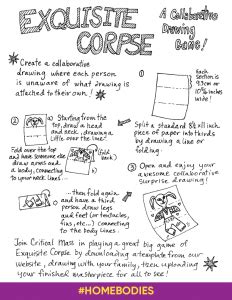 EXQUISITE
CORPSE
A Collaborative
Drawing
Game!
Create a collaborative
drawing where each person
is unaware of what drawing is
attached to their own!
①
Each
section is
wide!
Split a standard 8½ x 11 inch
piece of paper into thirds
by drawing a line or
folding.
② a) Starting from the
top, draw a head
and neck, drawing a
little over the line.
Fold over the top
and have someone else
draw arms and
a body, connecting
to your neck lines...
b)
(fold
back)
... then fold again
and have a third
person draw legs
and feet (or tentacles,
fins, etc...) connecting
to the body lines.
③ Open and enjoy your
awesome collaborative
surprise drawing!
Join Critical Mass in playing a great big game of
Exquisite Corpse by downloading a template from our
website, drawing with your family, then uploading
your finished masterpiece for all to see!
#HOMEBODIES